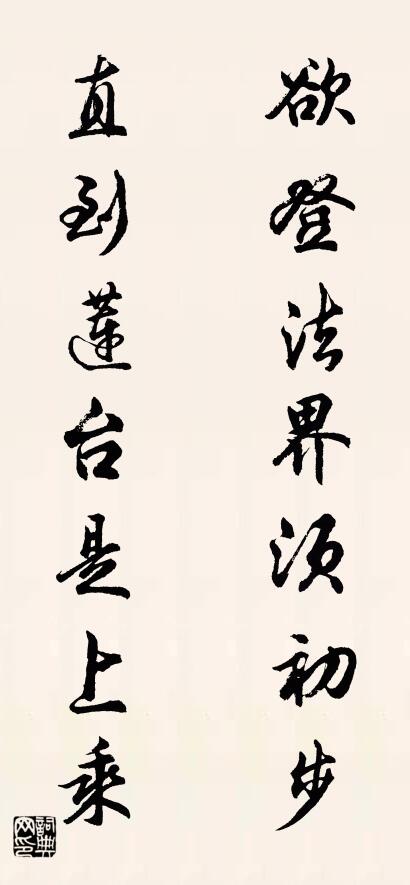 欲登法界须初步
直到蓮台是上乘
詞典网印